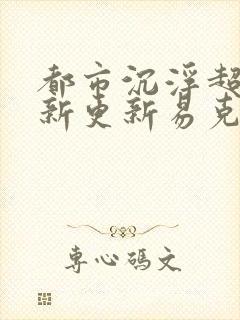 都市沉浮超
新更新易克
专心码文